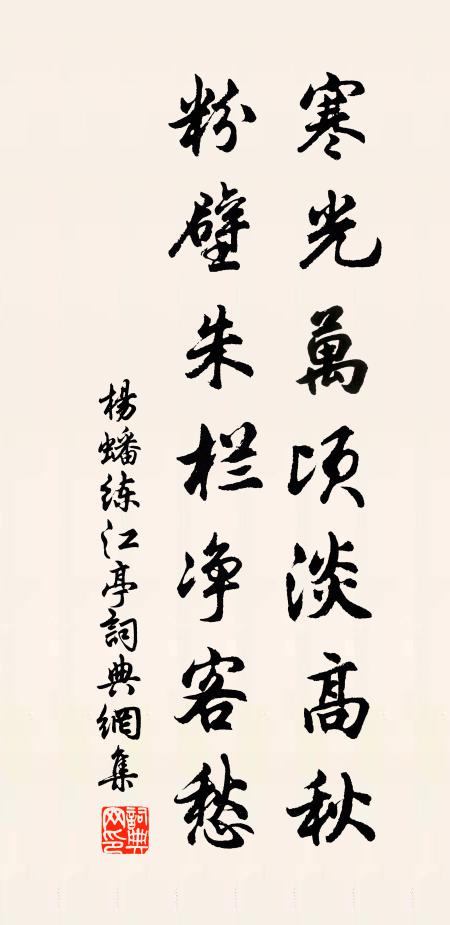 寒光萬頃淡高秋
粉壁朱栏净客愁
楊蟠练江亭詞典網集
詞典網印